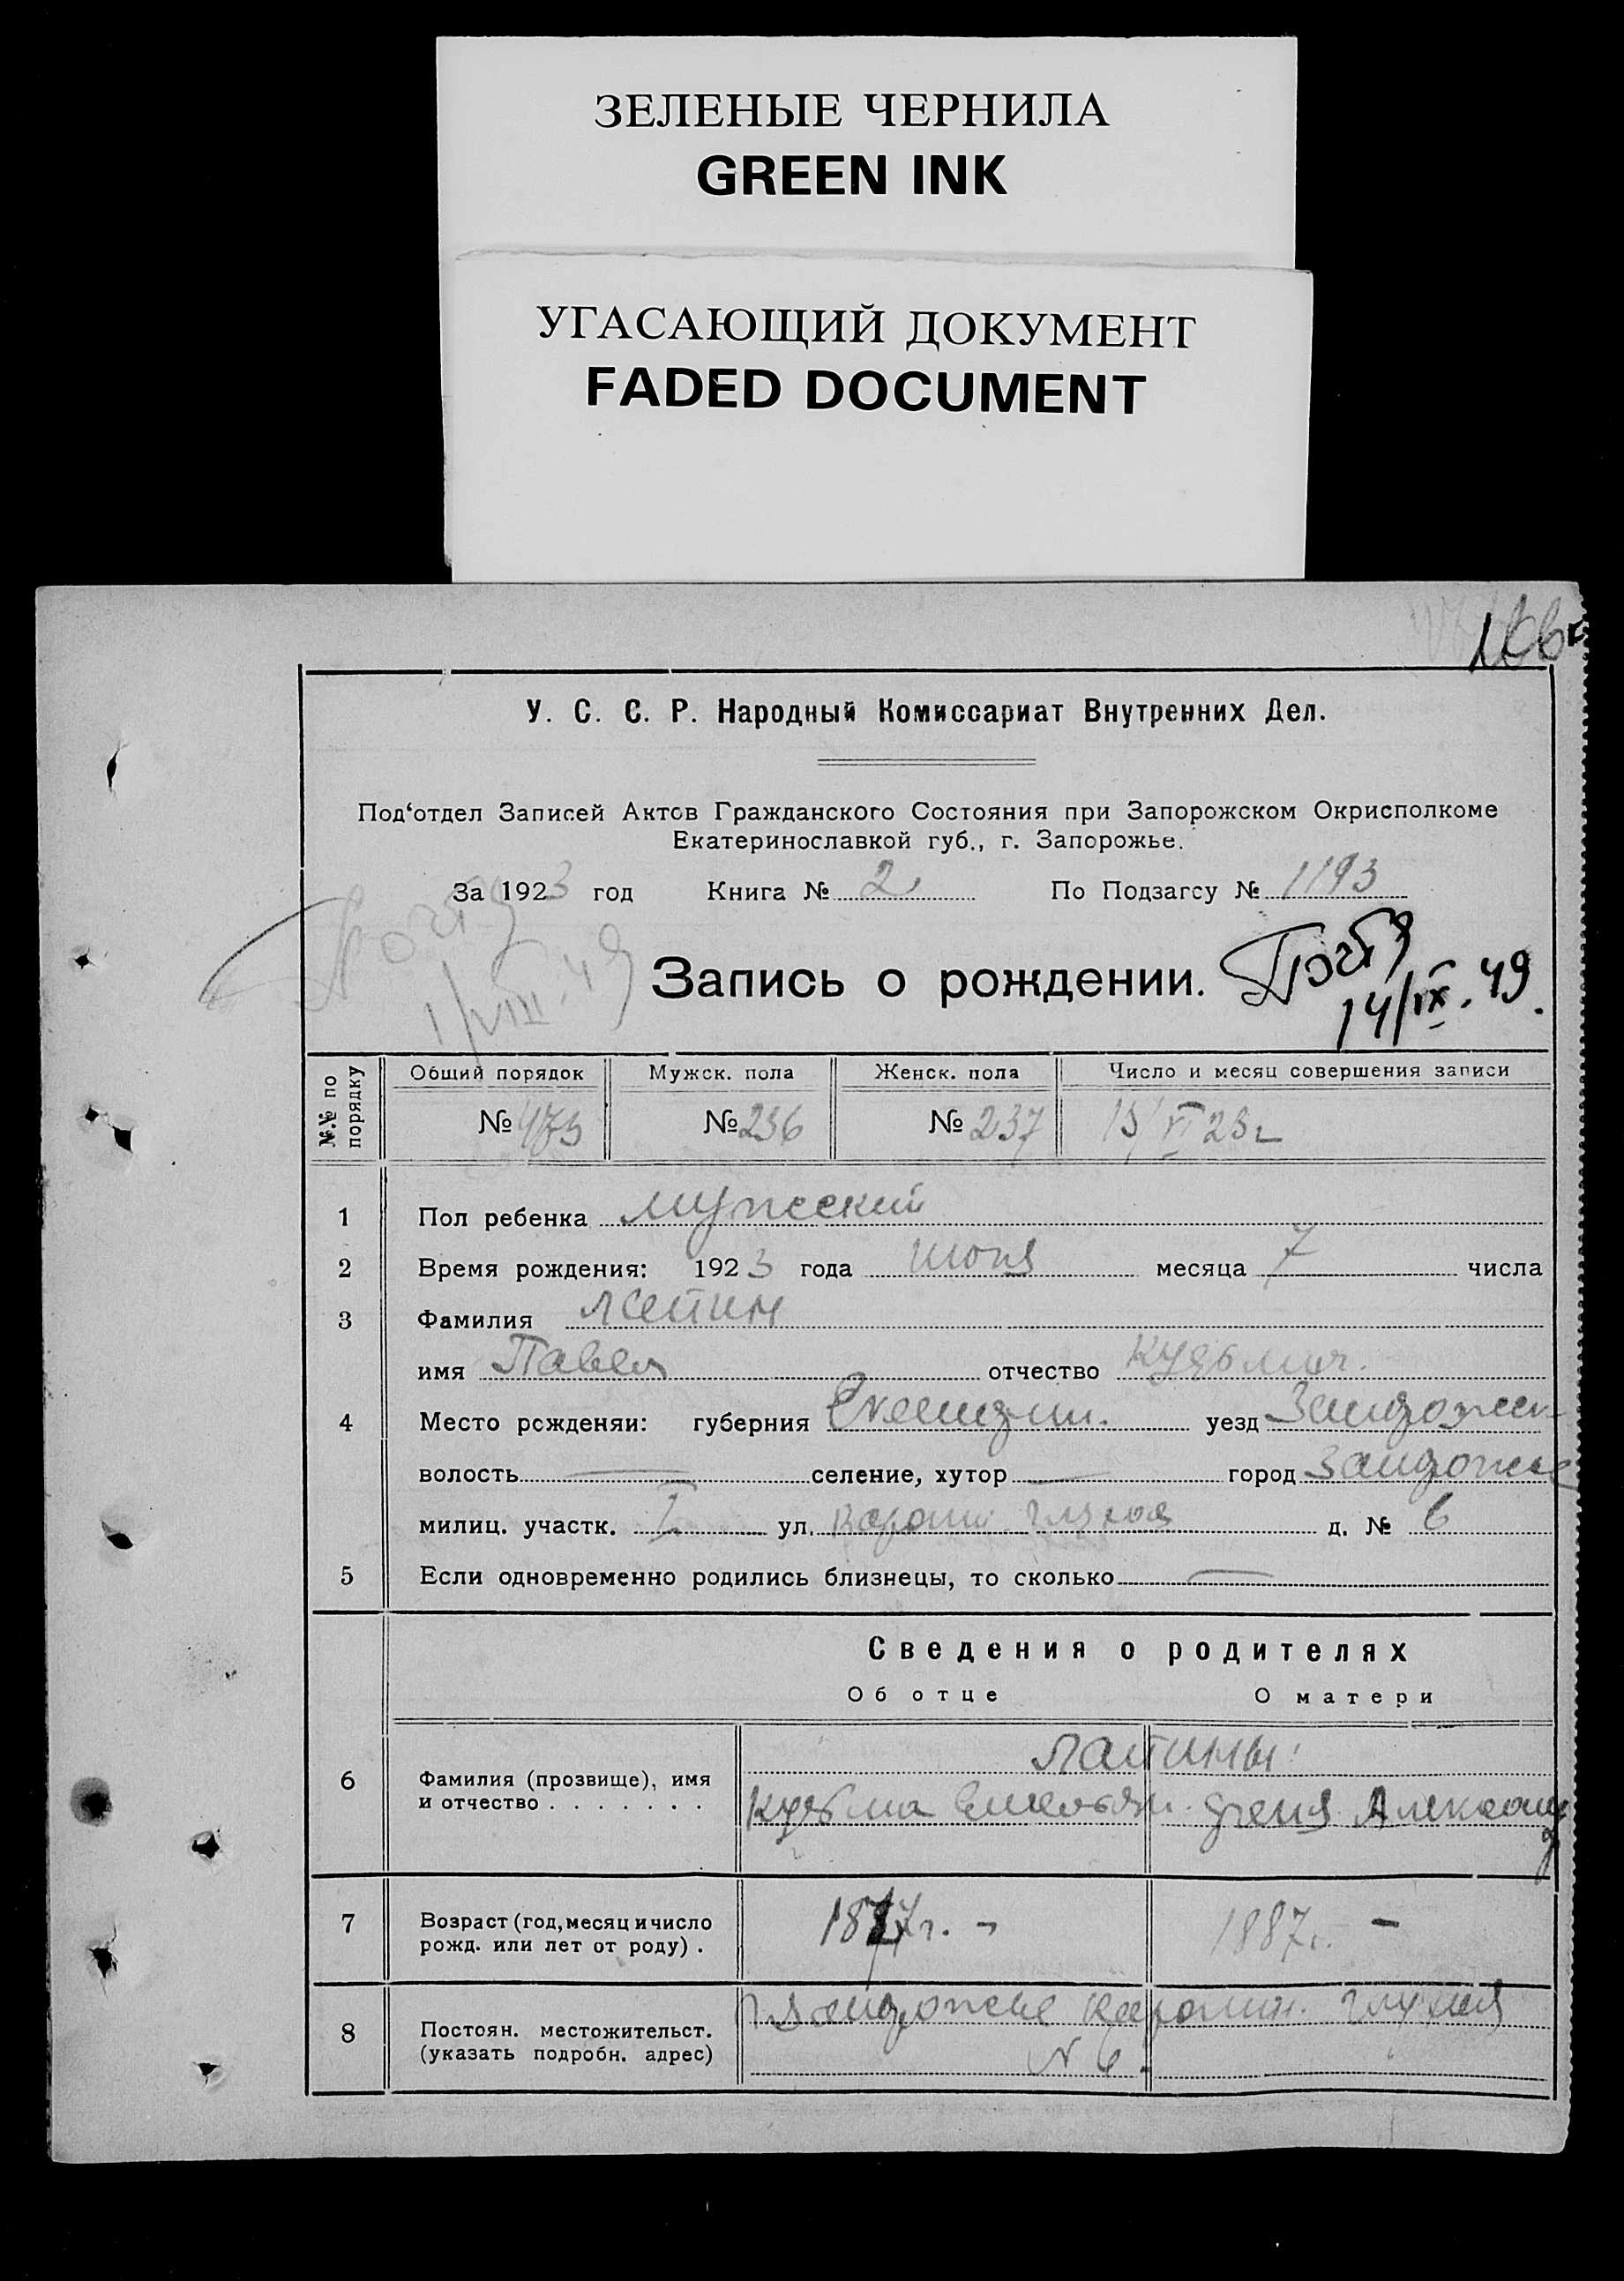 ЗЕЛЕНЫЕ ЧЕРНИЛА
GREEN INK
УГАСАЮЩИЙ ДОКУМЕНТ
FADED DOCUMENT
У. С. С. Р. Народный Комиссариат Внутренних Дел.
Под‘отдел Записей Актов Гражданского Состояния при Запорожском Окрисполкоме
Екатеринославкой губ., г. Запорожье.
За 1923 год Книга № 2 По Подзагсу № 1193
Запись о рождении.
1/VIII. 49
14/IX. 49.
№.№ по порядку
Общий порядок Мужск. пола Женск. пола Число и месяц совершения записи
№ 473 № 236 № 237 15/VI 23 г
1 Пол ребенка мужский
2 Время рождения: 1923 года июня месяца 7 числа
3 Фамилия
имя Павел отчество Кузьмич.
4 Место рожденяи: губерния уезд Запорожск
волость — селение, хутор — город Запорожье
милиц. участк. I ул. д. № 6
5 Если одновременно родились близнецы, то сколько —
Сведения о родителях
Об отце О матери
Лапины:
6 Фамилия (прозвище), имя
и отчество . . . . . . . Кузьма Емельян.
7 Возраст (год, месяц и число
рожд. или лет от роду) . 1887г. –
8 Постоян. местожительст.
(указать подробн. адрес)
Запорожье
N 6.